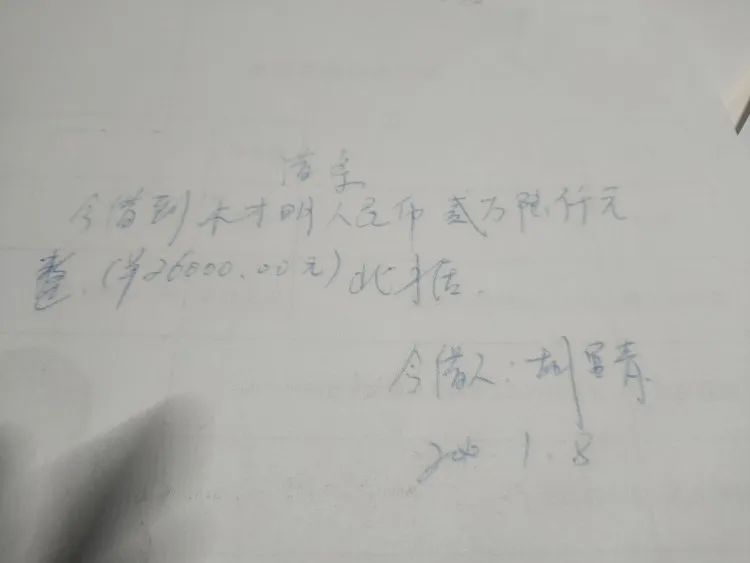 借条
今借到 才明人民币 贰万陆仟元
整.(¥26000.00元)此据.
今借人:胡 青
1.8